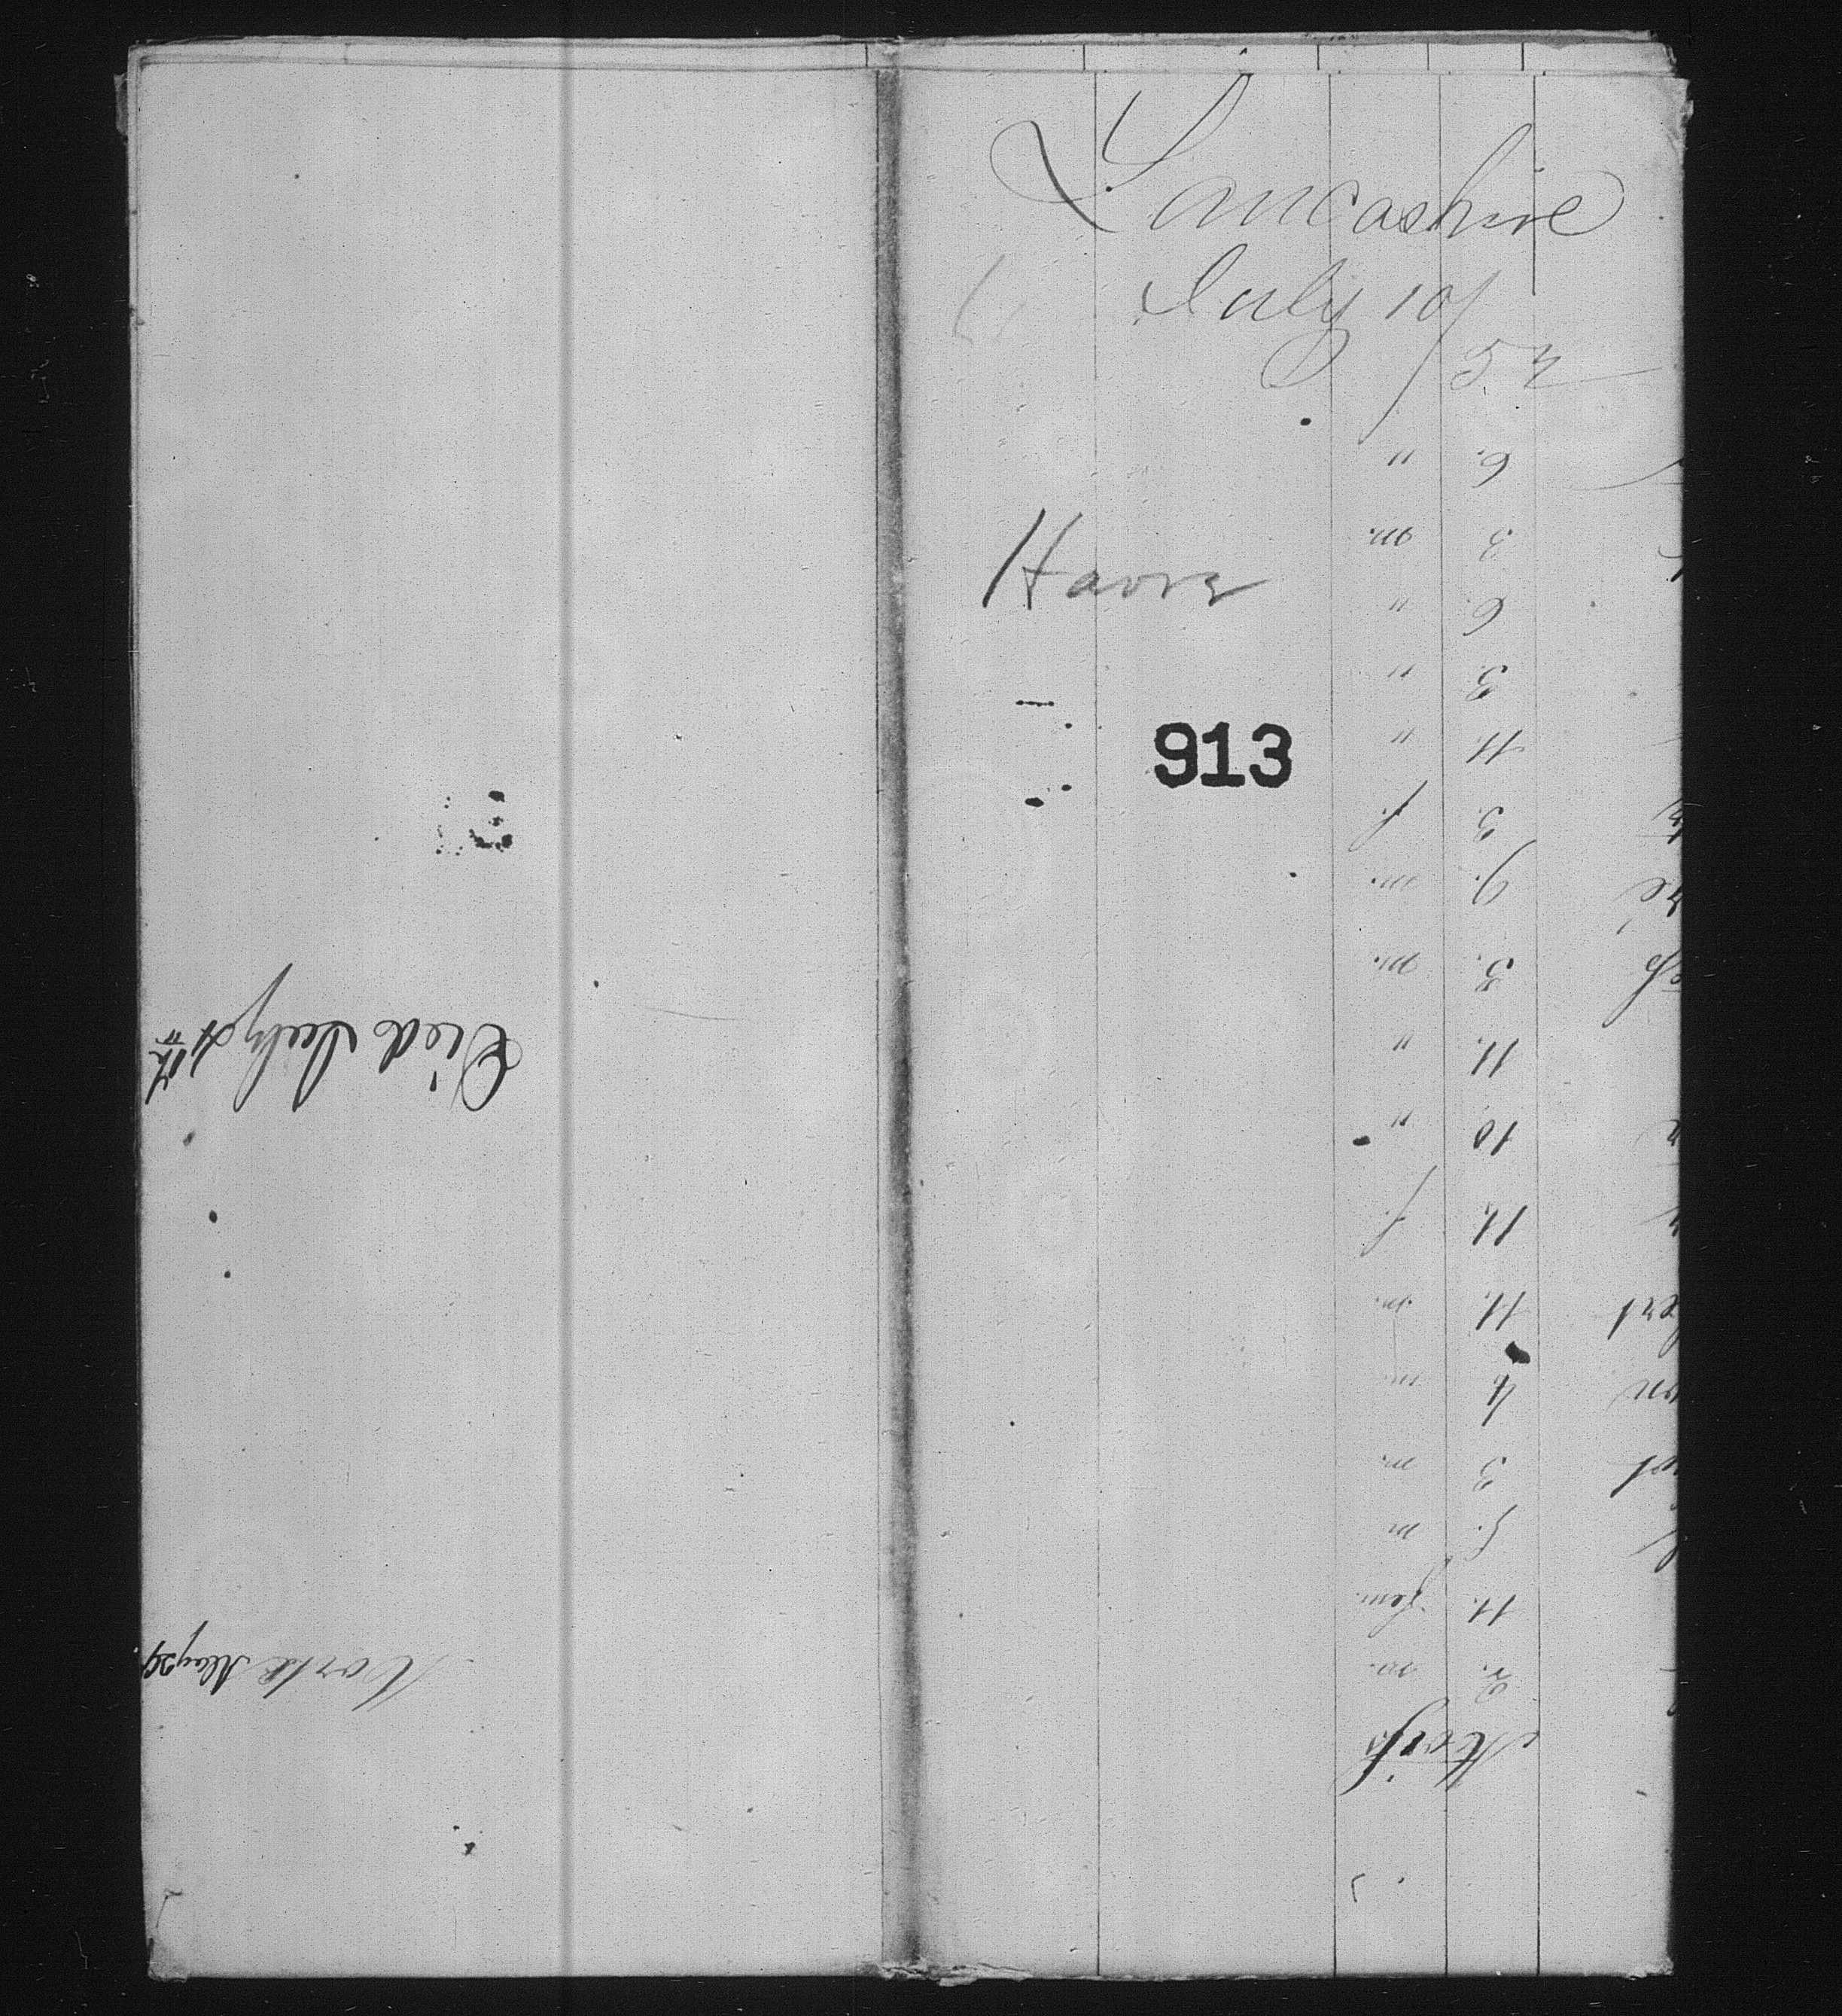 Lancashire
July 10/
/52
Havre
913
6. "
3 m.
6. "
3. "
11. "
3. f.
9. m.
3. m.
11. "
10 "
11. f.
11. m.
4 m
3 m.
5. m
11. fem.
2. m.
Died July 4th
May 29